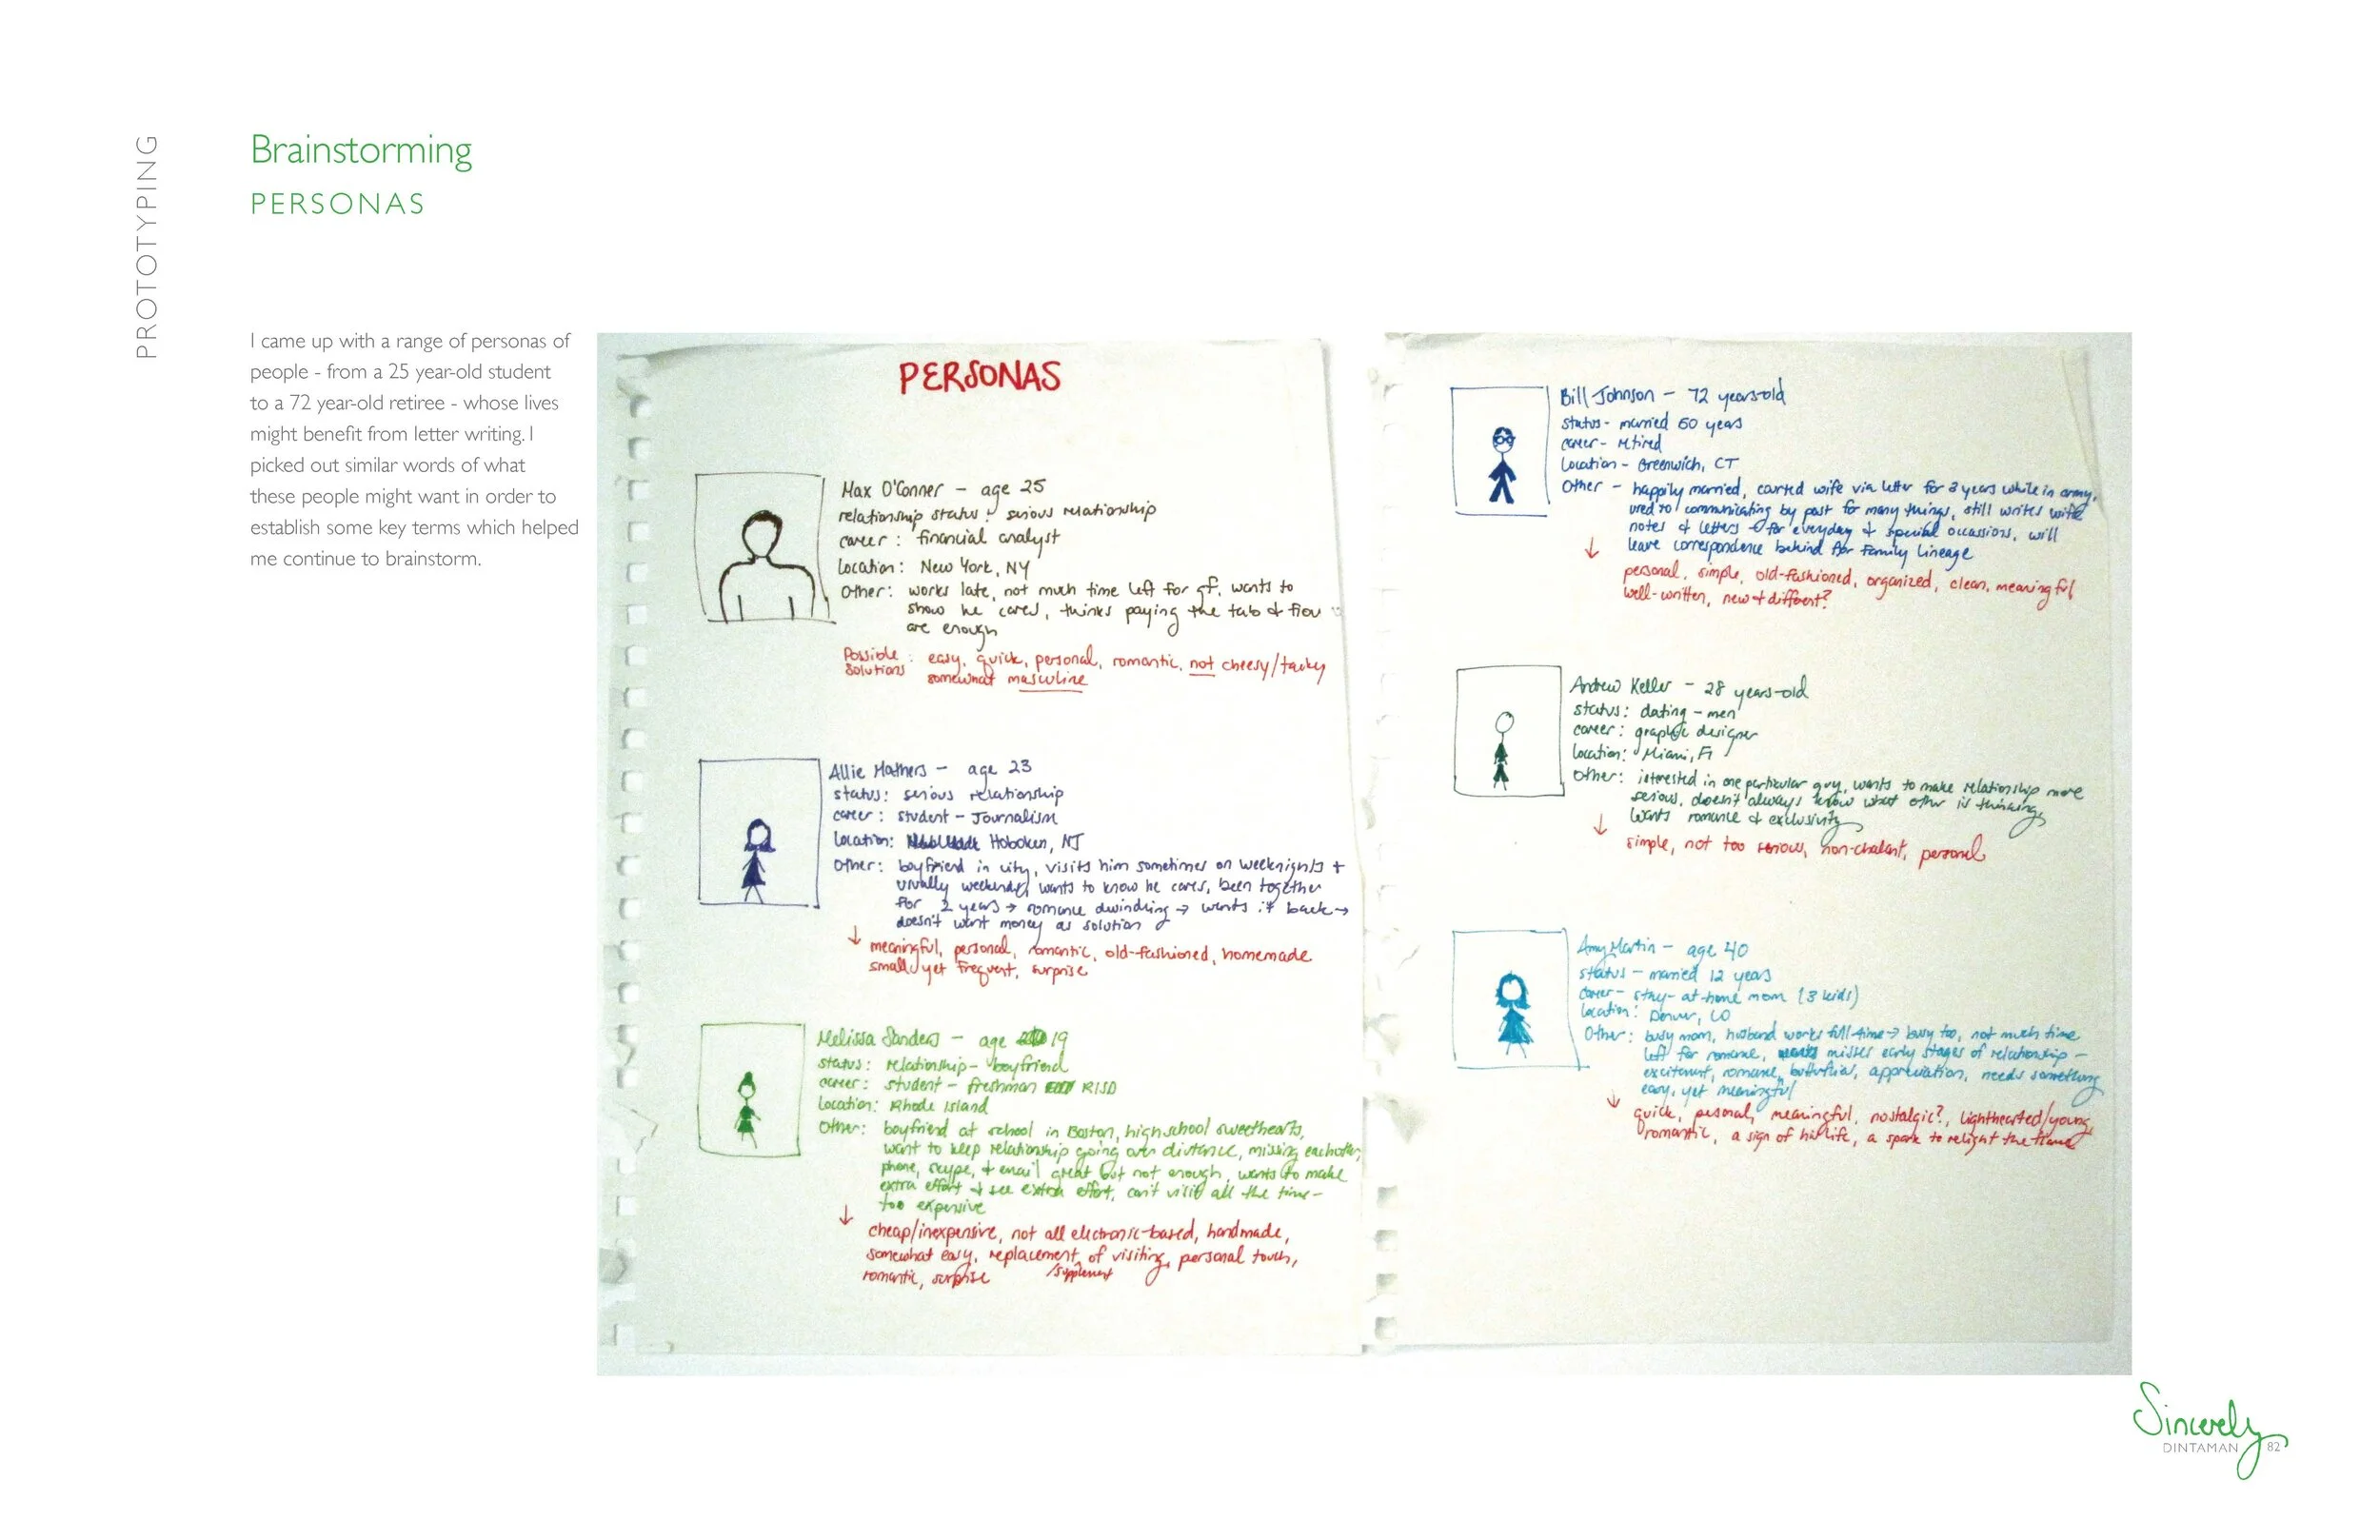 PROTOTYPING
Brainstorming
PERSONAS
I came up with a range of personas of
people - from a 25 year-old student
to a 72 year-old retiree - whose lives
might benefit from letter writing. I
picked out similar words of what
these people might want in order to
establish some key terms which helped
me continue to brainstorm.
PERSONAS
Max O'Conner - age 25
relationship status: serious relationship
career: financial analyst
Location: New York, NY
Other: works late, not much time left for gf. wants to
show he cares, thinks paying the tab &
are enough
Possible : easy, quick, personal, romantic, not cheesy/tacky
Solutions somewhat masculine
Allie Mathers - age 23
status: serious relationship
career: student - Journalism
Location: Hoboken, NJ
Other: boyfriend in city, visits him sometimes on weeknights +
usually weekends, wants to know he cares, been together
for 2 years → romance dwindling → wants it back →
doesn't want money as solution
↓ meaningful, personal, romantic, old-fashioned, homemade
small yet frequent, surprise
Melissa Sanders - age 19
status: relationship - boyfriend
career: student - freshman RISD
Location: Rhode Island
Other: boyfriend at school in Boston, high school sweethearts,
want to keep relationship going over distance, missing eachother,
phone, skype, + email great but not enough, wants to make
extra effort + see extra effort, can't visit all the time -
too expensive
↓ cheap/inexpensive, not all electronic-based, handmade,
somewhat easy, replacement of visiting, personal touch,
/supplement
romantic, surprise
Bill Johnson - 72 years-old
status - married 50 years
career - retired
Location - Greenwich, CT
Other - happily married, courted wife via letter for 2 years while in army,
used to communicating by post for many things, still writes wife
notes & letters for everyday & special occassions, will
leave correspondence behind for family lineage
↓ personal, simple, old-fashioned, organized, clean, meaningful
well-written, new + different?
Andrew Keller - 28 years-old
status: dating - men
career: graphic designer
Location: Miami, Fl
Other: interested in one particular guy, wants to make relationship more
serious, doesn't always know what other is thinking,
wants romance & exclusivity
↓ simple, not too serious, non-chalant, personal
Amy Martin - age 40
status - married 12 years
career - stay-at-home mom (3 kids)
Location: Denver, CO
Other: busy mom, husband works full-time → busy too, not much time
left for romance, misses early stages of relationship -
excitement, romance, butterflies, appreciation, needs something
easy, yet meaningful
↓ quick, personal, meaningful, nostalgic?, lighthearted/young,
romantic, a sign of life, a spark to relight the flame
Sincerely
DINTAMAN 82